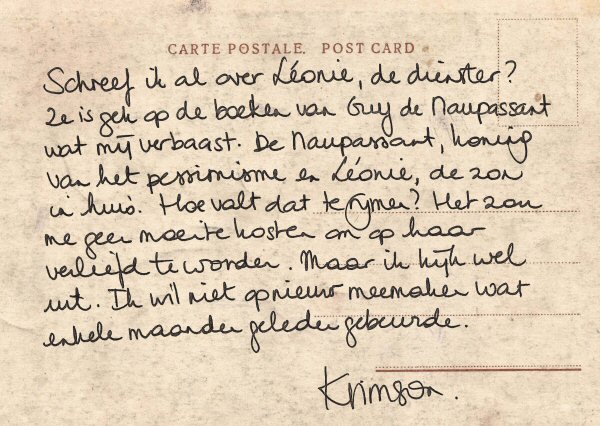 CARTE POSTALE. POST CARD
Schreef ik al over Léonie, de dienster?
Ze is gek op de boeken van Guy de Maupassant
wat mij verbaast. De Maupassant, koning
van het pessimisme en Léonie, de zon
in huis. Hoe valt dat te rijmen? Het zou
me geen moeite kosten om op haar
verliefd te worden. Maar ik kijk wel
uit. Ik wil niet opnieuw meemaken wat
enkele maanden geleden gebeurde.
Krimson.